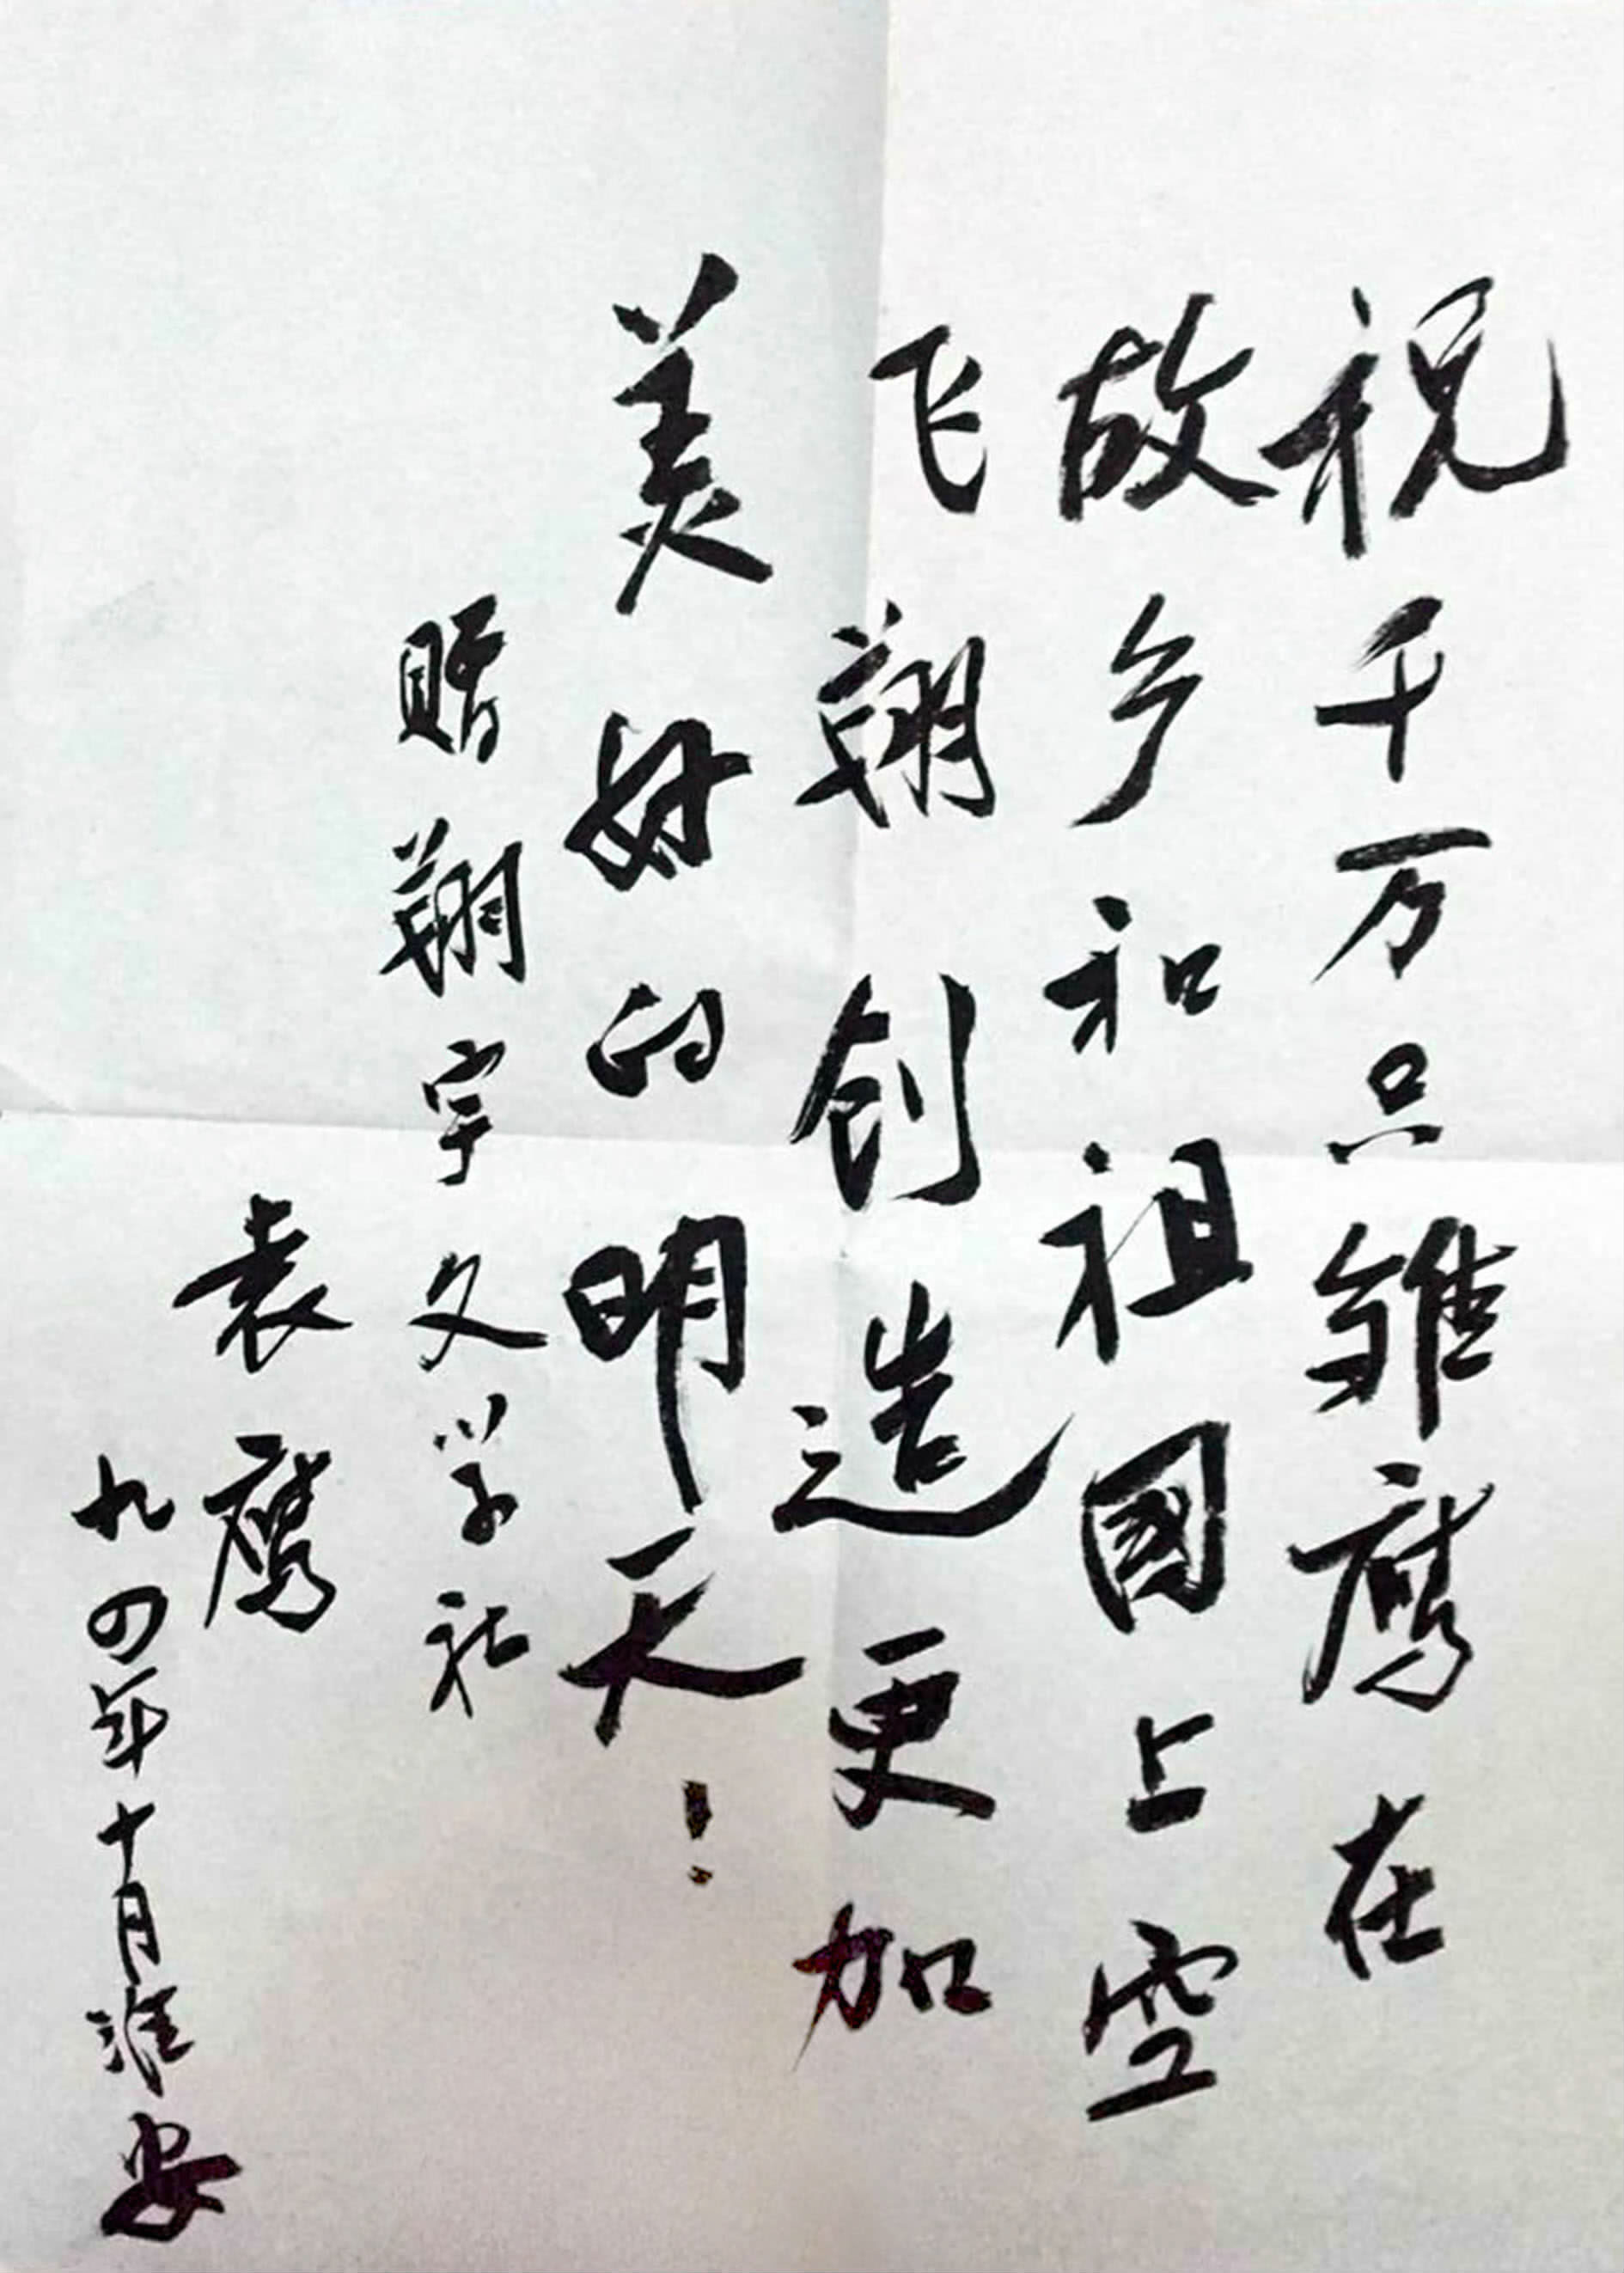 祝千万只雏鹰在
故乡和祖國上空
飞翔创造更加
美好的明天！
赠翔宇文学社
袁鹰
九四年十月淮安